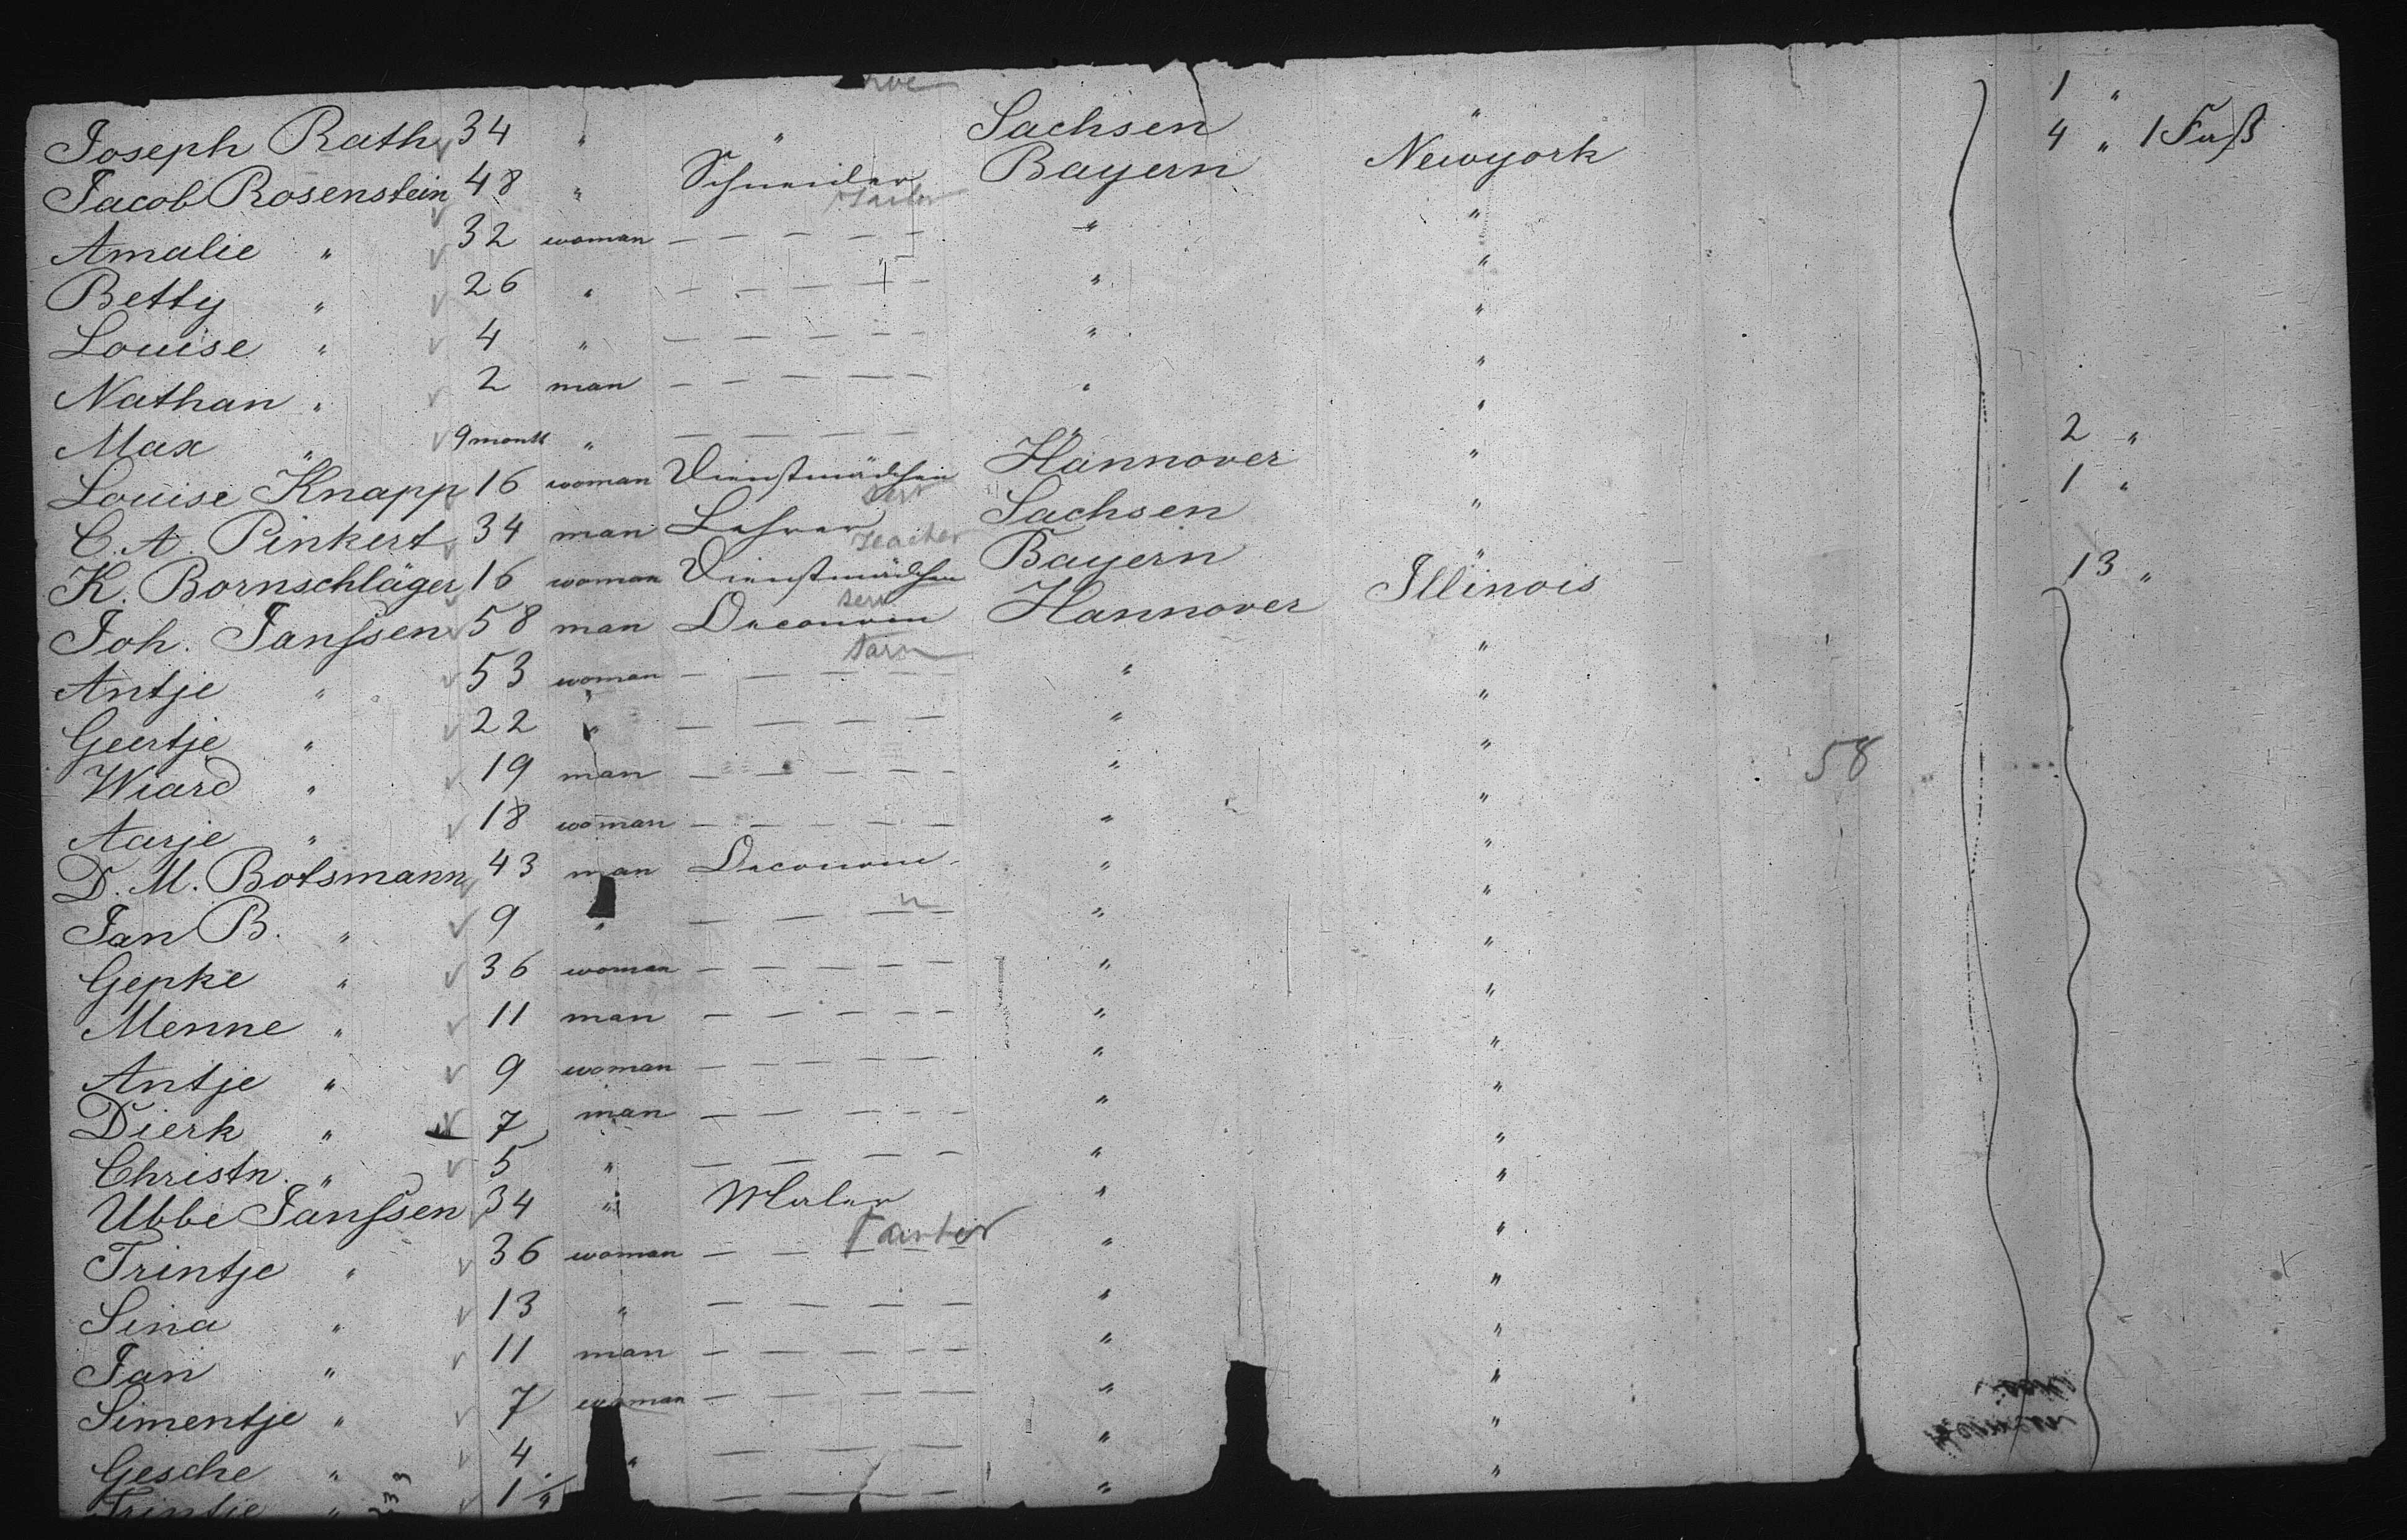 Joseph Rath 34 " " Sachsen " 1 "
Jacob Rosenstein 48 " Schneider Tailor Bayern Newyork 4 " 1 Faß
Amalie " 32 woman — — — — — " "
Betty " 26 " — — — — — " "
Louise " 4 " — — — — — " "
Nathan " 2 man — — — — — " "
Max " 9 month " — — — — " "
Louise Knapp 16 woman Dienstmädchen serv Hannover " 2 "
C. A. Pinkert 34 man Lehrer Teacher Sachsen " 1 "
K. Bornschläger 16 woman Dienstmädchen serv Bayern "
Joh. Janssen 58 man Oeconom farm Hannover Illinois 13 "
Antje " 53 woman — — — — — " "
Geertje " 22 " — — — — " "
Wiard " 19 man — — — — — " " 58
Aarje " 18 woman — — — — — " "
D. M. Botsmann 43 man Oeconom " "
Jan B. " 9 " — — — — " "
Gepke " 36 woman — — — — — " "
Menne " 11 man — — — — — " "
Antje " 9 woman — — — — — " "
Dierk " 7 man — — — — — " "
Christn. " 5 " — — — — — " "
Ubbe Janssen 34 " Maler Painter " "
Trintje " 36 woman — — — — " "
Sina " 13 " — — — — " "
Jan " 11 man — — — — — " "
Simentje " 7 woman — — — — — " "
Gesche " 4 " — — — — " "
Trintje " 1 — — — — " "